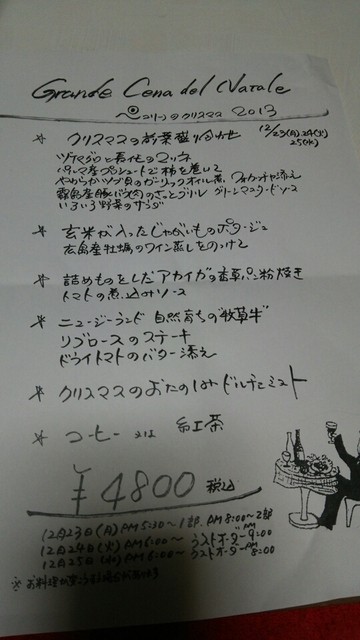 Grande Cena del Natale
のクリスマス 2013
12/23(月)24(火)
25(水)
* クリスマスの前菜盛り合わせ
ヅケマグロと のマリネ
パルマ産プロシュートで柿を巻いて
やわらかツブ貝のガーリックオイル煮 フォカッチャ添え
霧島産豚バラ肉の グリル グリーンマスタードソース
いろいろ野菜のサラダ
* 玄米が入ったじゃがいものポタージュ
広島産牡蠣のワイン蒸しをのっけて
* 詰めものをしたアカイカの香草パン粉焼き
トマトの煮込みソース
* ニュージーランド 自然育ちの"牧草牛"
リブロースのステーキ
ドライトマトのバター添え
* クリスマスのおたのしみドルチェミスト
* コーヒー 又は 紅茶
¥4800 税込
12月23日(月) PM5:30〜1部 PM8:00〜2部
12月24日(火) PM6:00〜 ラストオーダーPM9:00
12月25日(水) PM6:00〜 ラストオーダーPM8:00
※ お料理が変わる場合があります